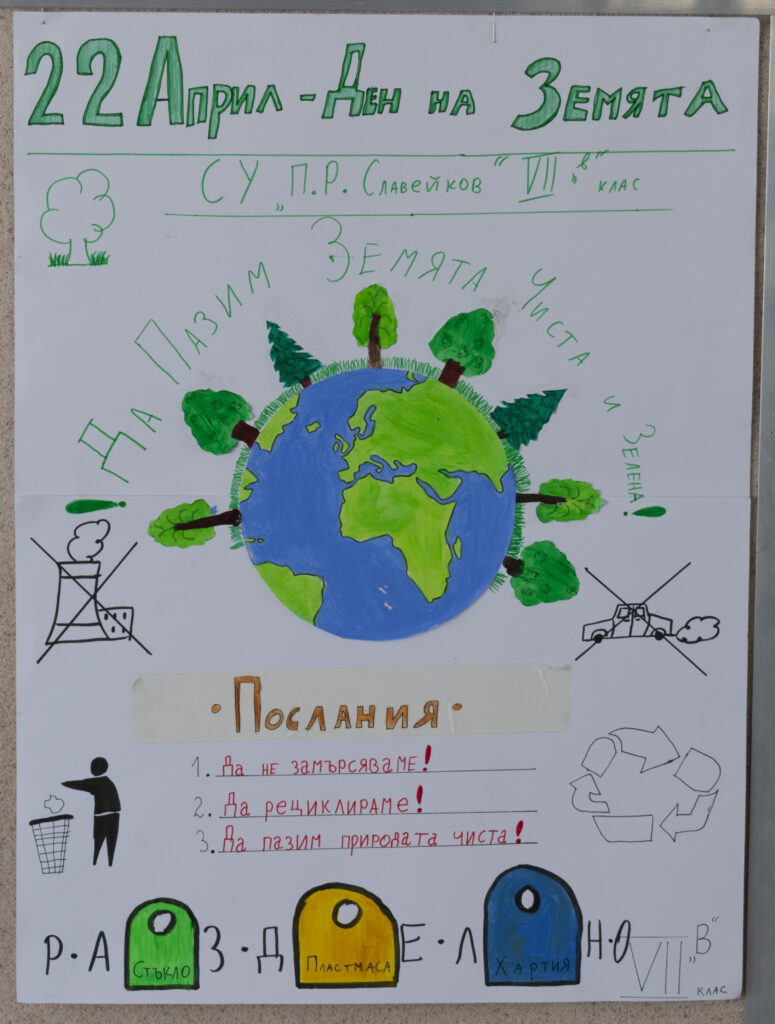 22 Април - Ден на Земята
СУ „П.Р. Славейков“ VII „в“ клас
Да Пазим Земята Чиста и Зелена!
• Послания •
1. Да не замърсяваме!
2. Да рециклираме!
3. Да пазим природата чиста!
Р • А З • Д Е • Л Н • О
Стъкло Пластмаса Хартия
VII „В“ клас